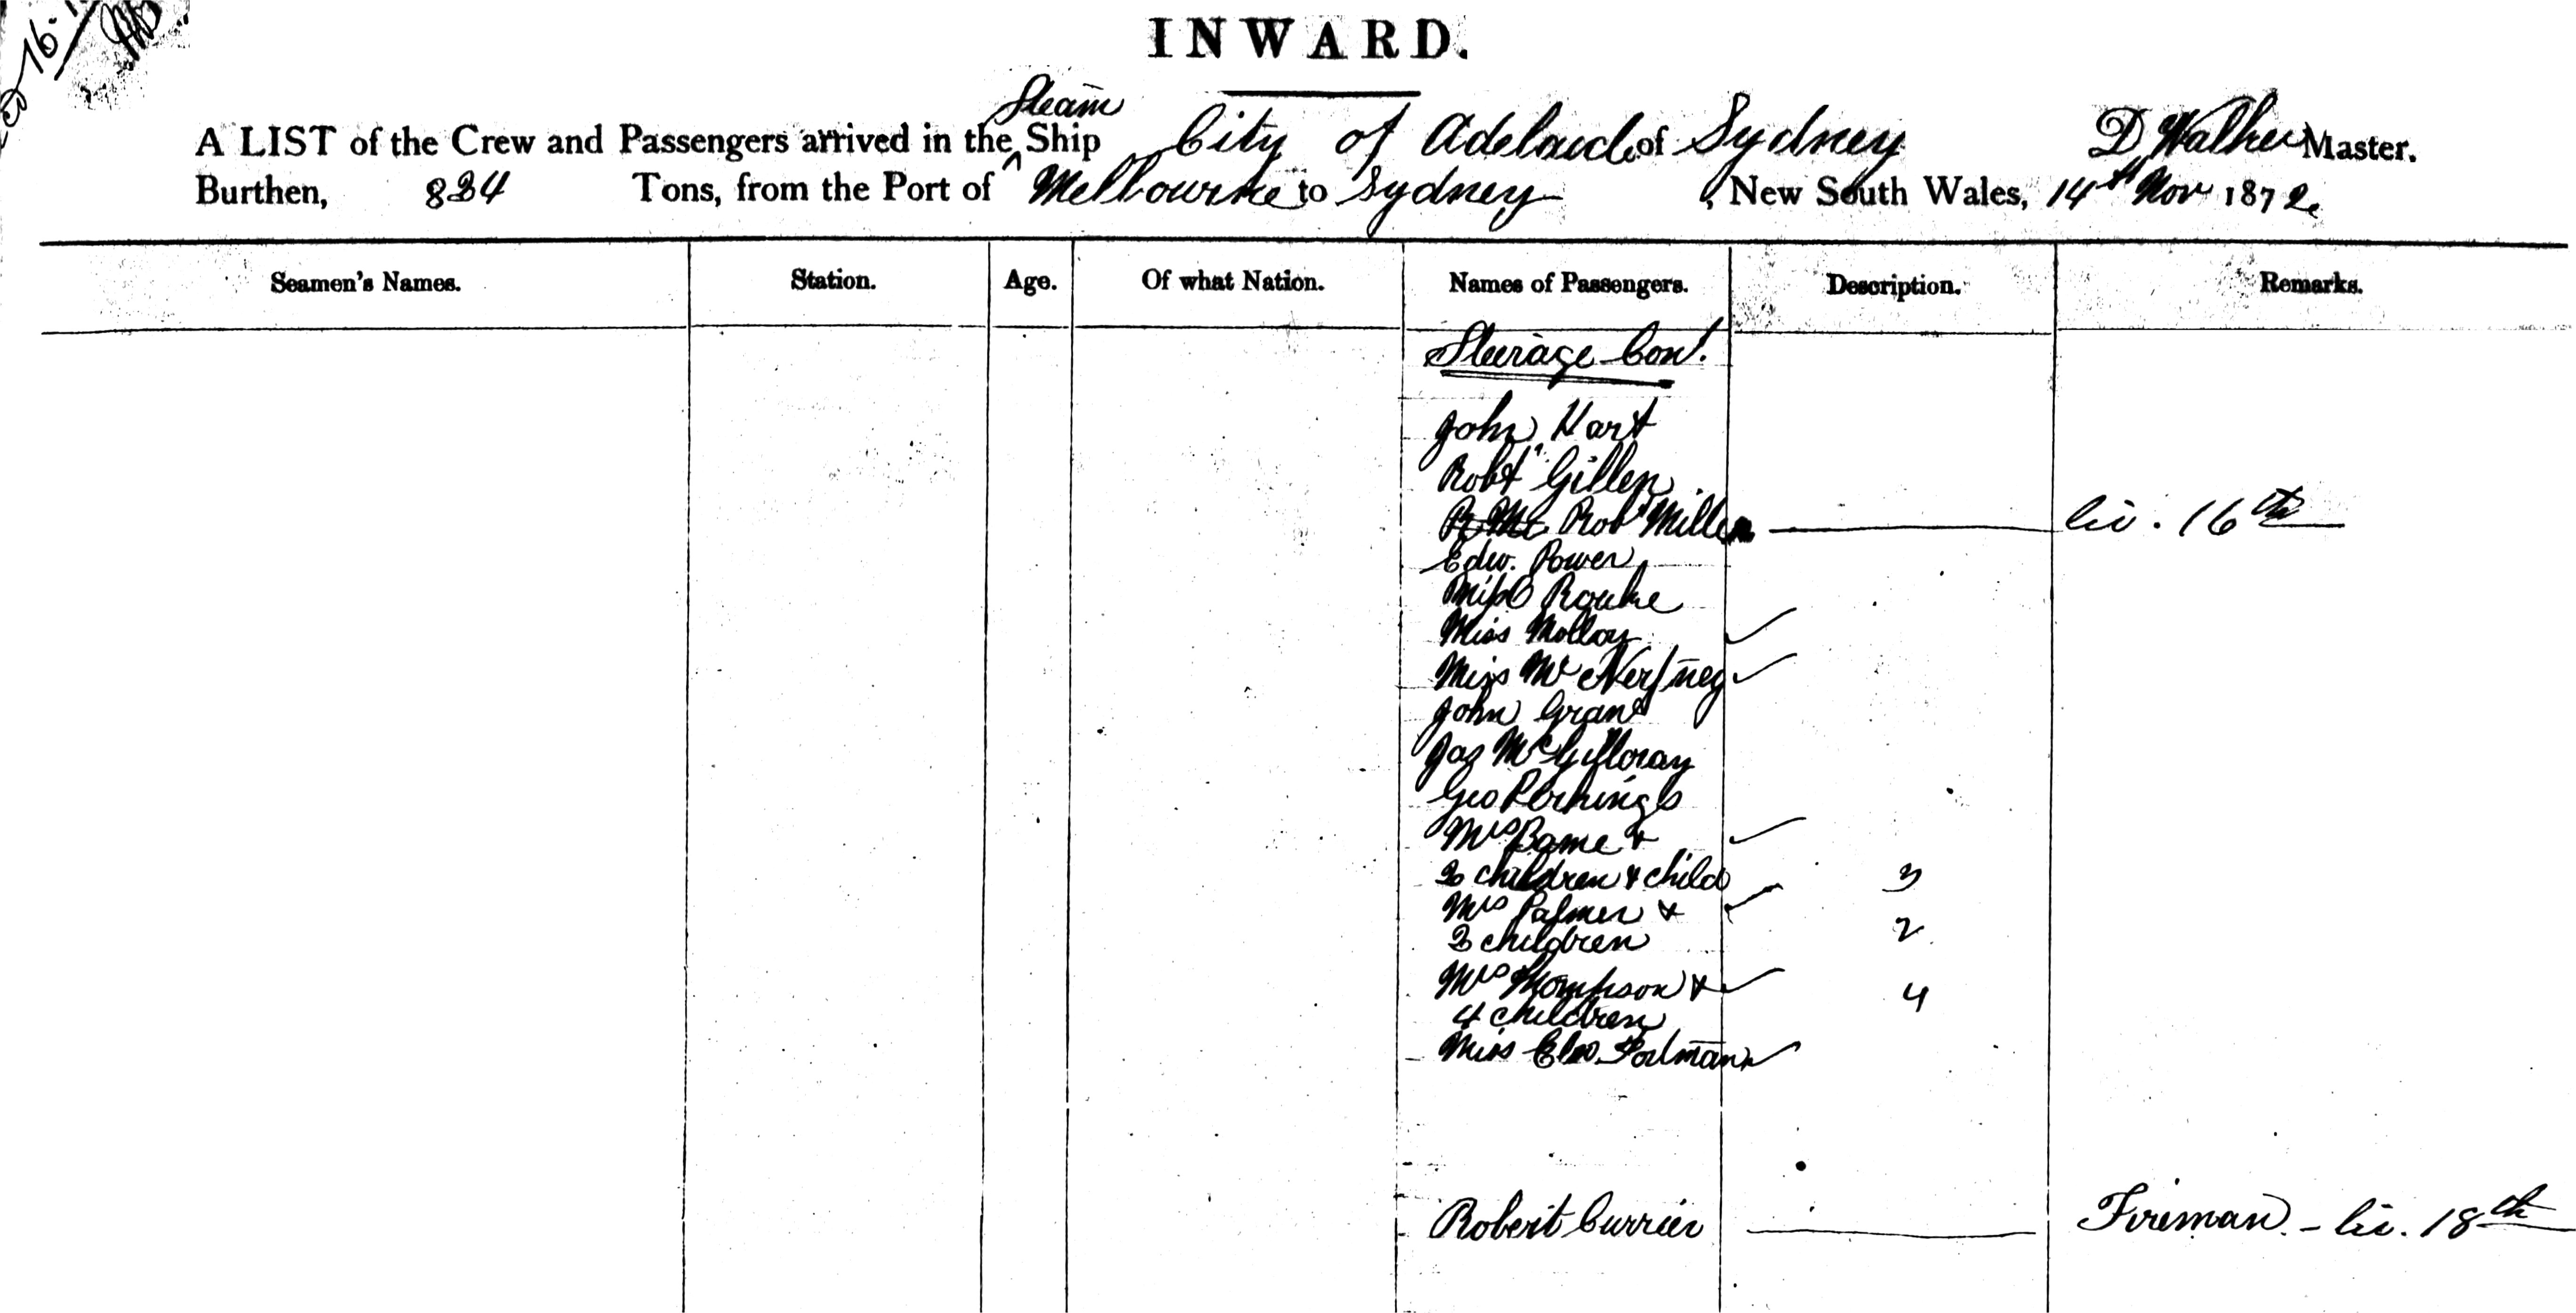 16
INWARD.
A LIST of the Crew and Passengers arrived in the Steam Ship City of Adelaide of Sydney D Walker Master.
Burthen, 834 Tons, from the Port of Melbourne to Sydney, New South Wales, 14th Nov 1872
Seamen's Names. Station. Age. Of what Nation. Names of Passengers. Description. Remarks.
Steerage Cont.
John Hart
Robt Gillen
R Mc Robt Miller lic. 16th
Edw. Power
Miss Rourke
Miss Molloy
Miss Mc
John Grant
Jas McGilloray
Geo
Mrs Bame &
2 children & child 3
Mrs Palmer &
2 children 2
Mrs Thompson &
4 children 4
Miss
Robert Currier Fireman - lic. 18th